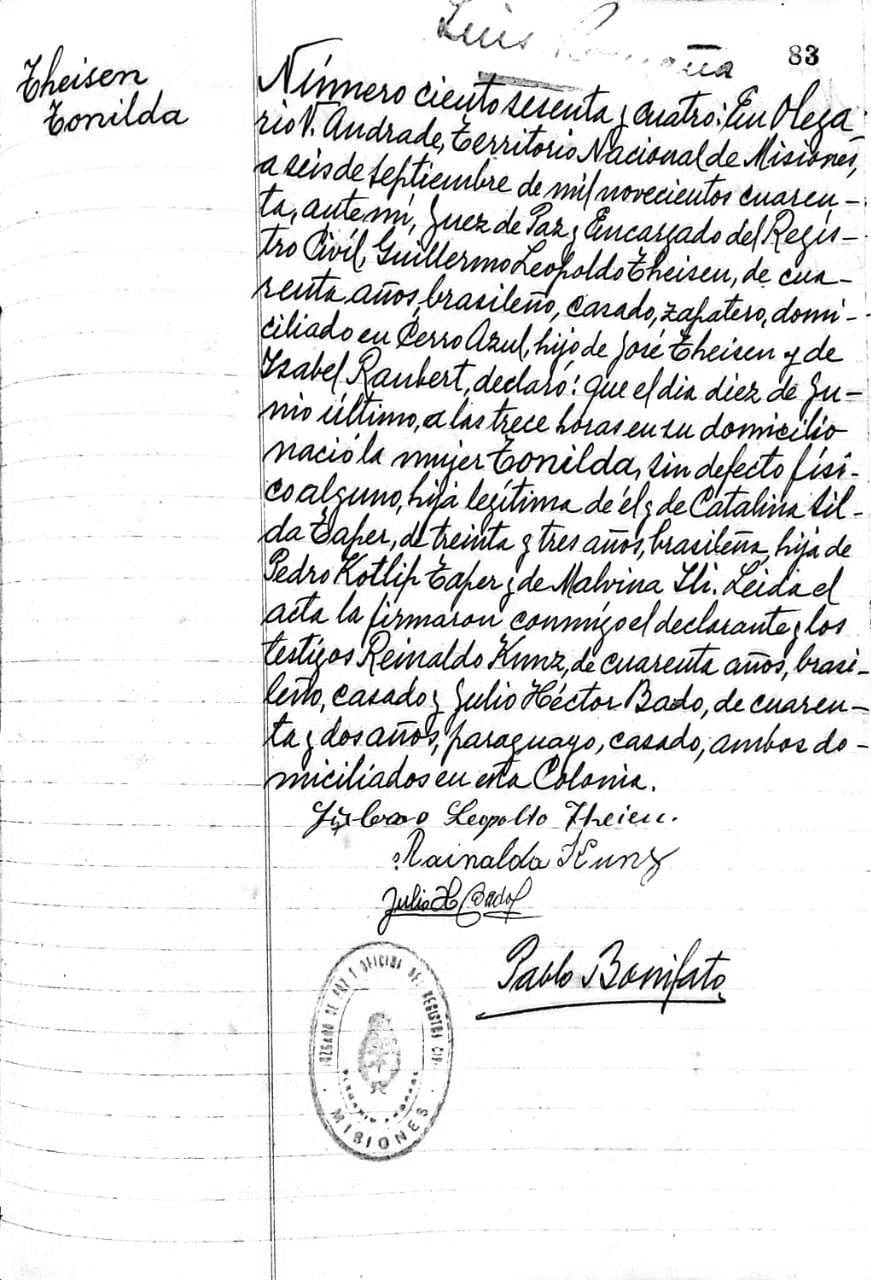 Luis
83
Theisen
Tonilda
Número ciento sesenta y cuatro: En Olega-
rio V. Andrade, Territorio Nacional de Misiones,
a seis de septiembre de mil novecientos cuaren-
ta, ante mí, Juez de Paz y Encargado del Regis-
tro Civil, Guillermo Leopoldo Theisen, de cua-
renta años, brasileño, casado, zapatero, domi-
ciliado en Cerro Azul, hijo de José Theisen y de
Isabel Raubert, declaró: que el dia diez de Ju-
nio último, a las trece horas en su domicilio
nació la mujer Tonilda, sin defecto físi-
co alguno, hija legítima de él y de Catalina Sil-
da Taper, de treinta y tres años, brasileña, hija de
Pedro Kotlip Taper y de Malvina Ili. Leida el
acta la firmaron conmigo el declarante y los
testigos Reinaldo Kunz, de cuarenta años, brasi-
leño, casado y Julio Héctor Bado, de cuaren-
ta y dos años, paraguayo, casado, ambos do-
miciliados en esta Colonia.
Leopolto Theien.
Rainaldo Kunz
Julio H Bado
Pablo Bonifato
JUZGADO DE PAZ Y OFICINA DEL REGISTRO CIVIL
MISIONES